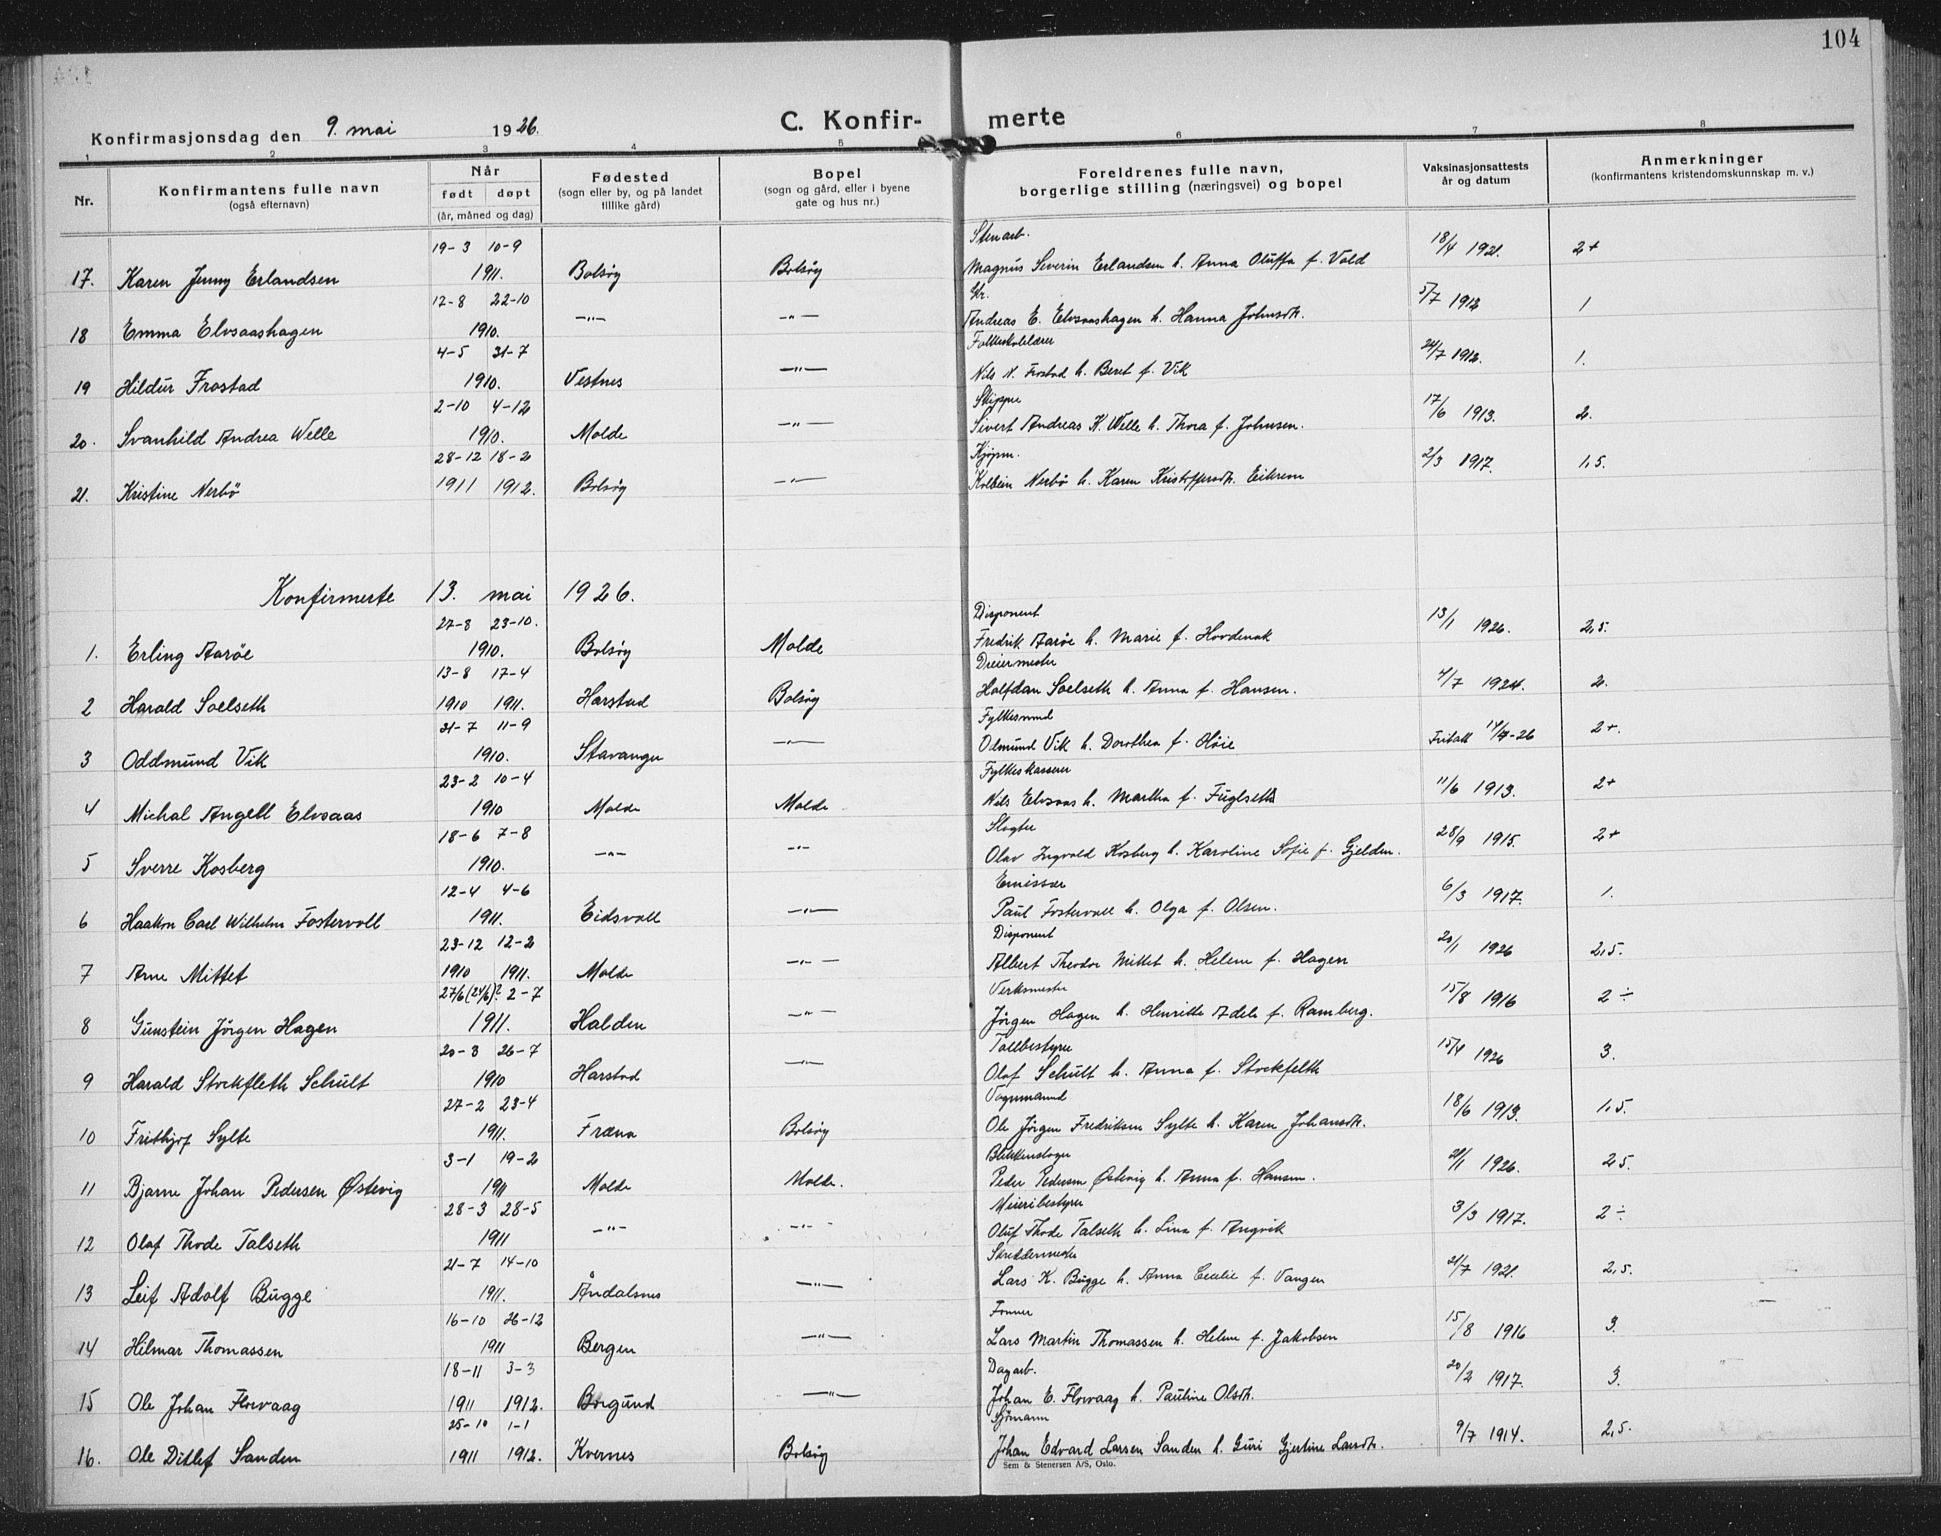 104
Konfirmasjonsdag den 9. mai 1926.
C. Konfir- merte
1 2 3 4 5 6 7 8
Nr.
Konfirmantens fulle navn
(også efternavn)
Når
født døpt
(år, måned og dag)
Fødested
(sogn eller by, og på landet
tillike gård)
Bopel
(sogn og gård, eller i byene
gate og hus nr.)
Foreldrenes fulle navn,
borgerlige stilling (næringsvei) og bopel
Vaksinasjonsattests
år og datum
Anmerkninger
(konfirmantens kristendomskunnskap m. v.)
19-3 10-9 Stenarb.
17. Karen Jenny Erlandsen 1911. Bolsøy Bolsøy Magnus Severin Erlandsen h. Anna Oluffa f. Vold 18/4 1921. 2+
12-8 22-10 Gr.
18 Emma Elvsaashagen 1910. -"- -"- Andreas E. Elvsaashagen h. Hanna Johnsdt. 5/7 1912 1
4-5 31-7 Folkeskolelærer
19 Hildur Frostad 1910. Vestnes -"- Nils N. Frostad h. Beret f. Vik 24/7 1912. 1.
2-10 4-12 Skipper
20. Svanhild Andrea Welle 1910. Molde -"- Sivert Andreas K. Welle h. Thora f. Johnsen. 17/6 1913. 2.
28-12 18-2 Kjøpm.
21. Kristine Nerbö 1911 1912. Bolsøy -"- Kolbein Nerbö h. Karen Kristoffersdt. Eikrem 2/3 1917. 1,5.
Konfirmerte 13. mai 1926.
27-8 23-10. Disponent
1. Erling Aarøe 1910. Bolsøy Molde Fredrik Aarøe h. Marie f. Hovdenak 13/1 1926. 2,5.
13-8 17-4 Dreiermester
2 Harald Soelseth 1910 1911. Harstad Bolsøy Halfdan Soelseth h. Anna f. Hansen. 4/7 1924. 2.
31-7 11-9 Fylkesmand
3 Oddmund Vik 1910. Stavanger -"- Odmund Vik h. Dorthea f. Høie Fritatt 14/4-26 2+.
23-2 10-4 Fylkeskasserer
4 Michal Angell Elvsaas 1910 Molde Molde Nils Elvsaas h. Martha f. Fuglseth 11/6 1913. 2+
18-6 7-8 Slagter
5 Sverre Kosberg 1910. -"- -"- Olav Ingvald Kosberg h. Karoline Sofie f. Gjelden. 28/9 1915. 2+
12-4 4-6 Emissær
6 Haakon Carl Wilhelm Fostervoll 1911. Eidsvoll -"- Paul Fostervoll h. Olga f. Olsen. 6/3 1917. 1.
23-12 12-2 Disponent
7 Arne Mittet 1910 1911. Molde -"- Albert Theodor Mittet h. Helene f. Hagen 20/1 1926 2,5.
27/6 (24/6)? 2-7 Verksmester
8 Gunstein Jörgen Hagen 1911. Halden -"- Jörgen Hagen h. Henriette Adele f. Ramberg. 15/8 1916 2 ÷
20-3 26-7 Tollbestyrer
9 Harald Stockfleth Schult 1910 Harstad -"- Olaf Schult h. Anna f. Stockfelth 15/4 1926 3.
27-2 23-4 Vognmand
10 Frithjof Sylte 1911. Fræna Bolsøy Ole Jörgen Fredriksen Sylte h. Karen Johansdt. 18/6 1913. 1,5.
3-1 19-2 Blikkenslager
11 Bjarne Johan Pedersen Østevig 1911 Molde Molde. Peder Pedersen Østevig h. Anna f. Hansen. 21/1 1926. 2,5.
28-3 28-5 Meieribestyrer
12 Olaf Thode Talseth 1911 -"- -"- Oluf Thode Talseth h. Lina f. Angvik 3/3 1917. 2 ÷
21-7 14-10 Skreddermester
13 Leif Adolf Bugge 1911. Åndalsnes -"- Lars K. Bugge h. Anna Cecilie f. Vangen 21/7 1921. 2,5.
16-10 26-12
14 Hilmar Thomassen 1911 Bergen -"- Lars Martin Thomassen h. Helene f. Jakobsen 15/8 1916 3.
18-11 3-3 Dagarb.
15 Ole Johan Florvaag 1911 1912. Borgund -"- Johan E. Florvaag h. Pauline Olsdt. 20/2 1917. 3.
25-10 1-1 Sjømann
16. Ole Ditlef Sanden 1911 1912. Kvernes Bolsøy Johan Edvard Larsen Sanden h. Guri Gjertine Larsdt. 9/7 1914. 2,5.
Sem & Stenersen A/S, Oslo.